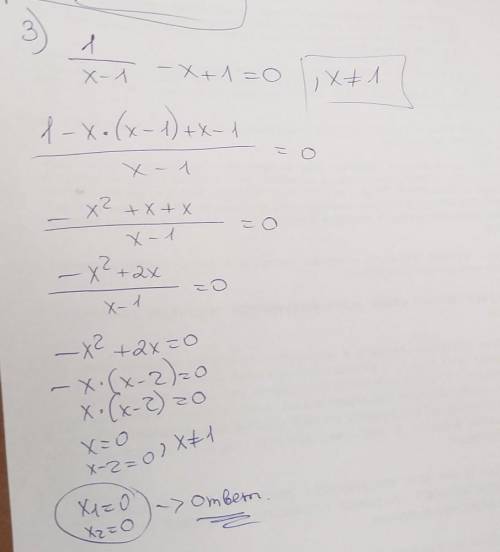 3)
1/(x-1) -x+1=0 , x≠1
(1-x·(x-1)+x-1)/(x-1) =0
(-x²+x+x)/(x-1) =0
(-x²+2x)/(x-1) =0
-x²+2x=0
-x·(x-2)=0
x·(x-2)=0
x=0
x-2=0 , x≠1
x1=0
x2=0 -> ответ.